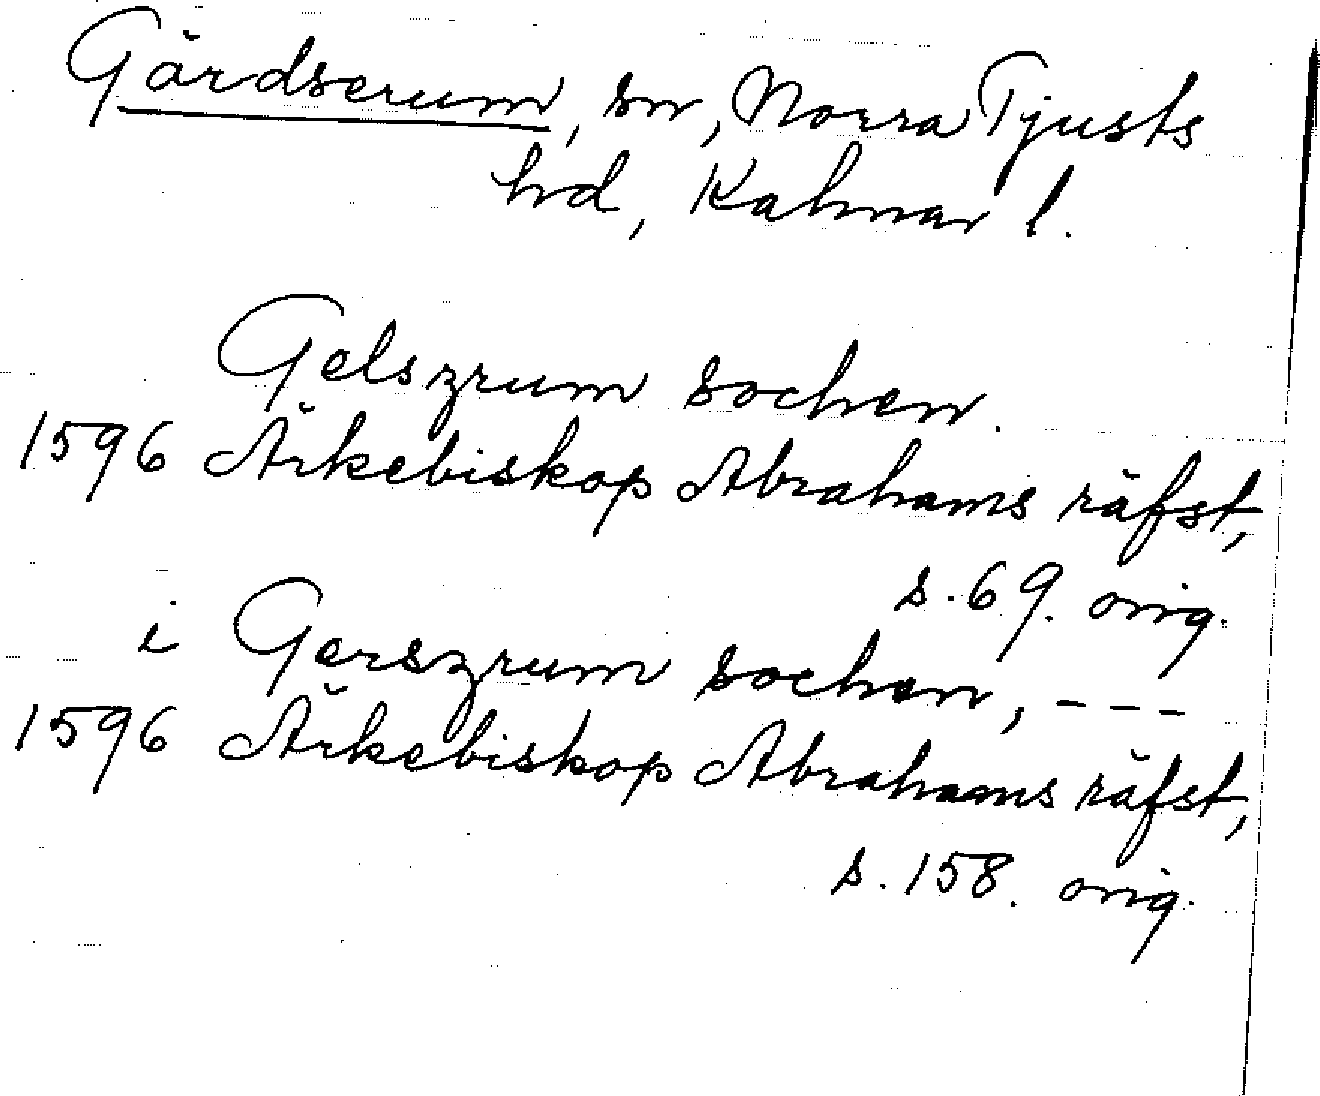 Gärdserum, sn, Norra Tjusts
hd, Kalmar l.
Gelszrum sochen.
1596 Ärkebiskop Abrahams räfst,
s. 69. orig.
i Gerszrum sochen, ---
1596 Ärkebiskop Abrahams räfst,
s. 158. orig.